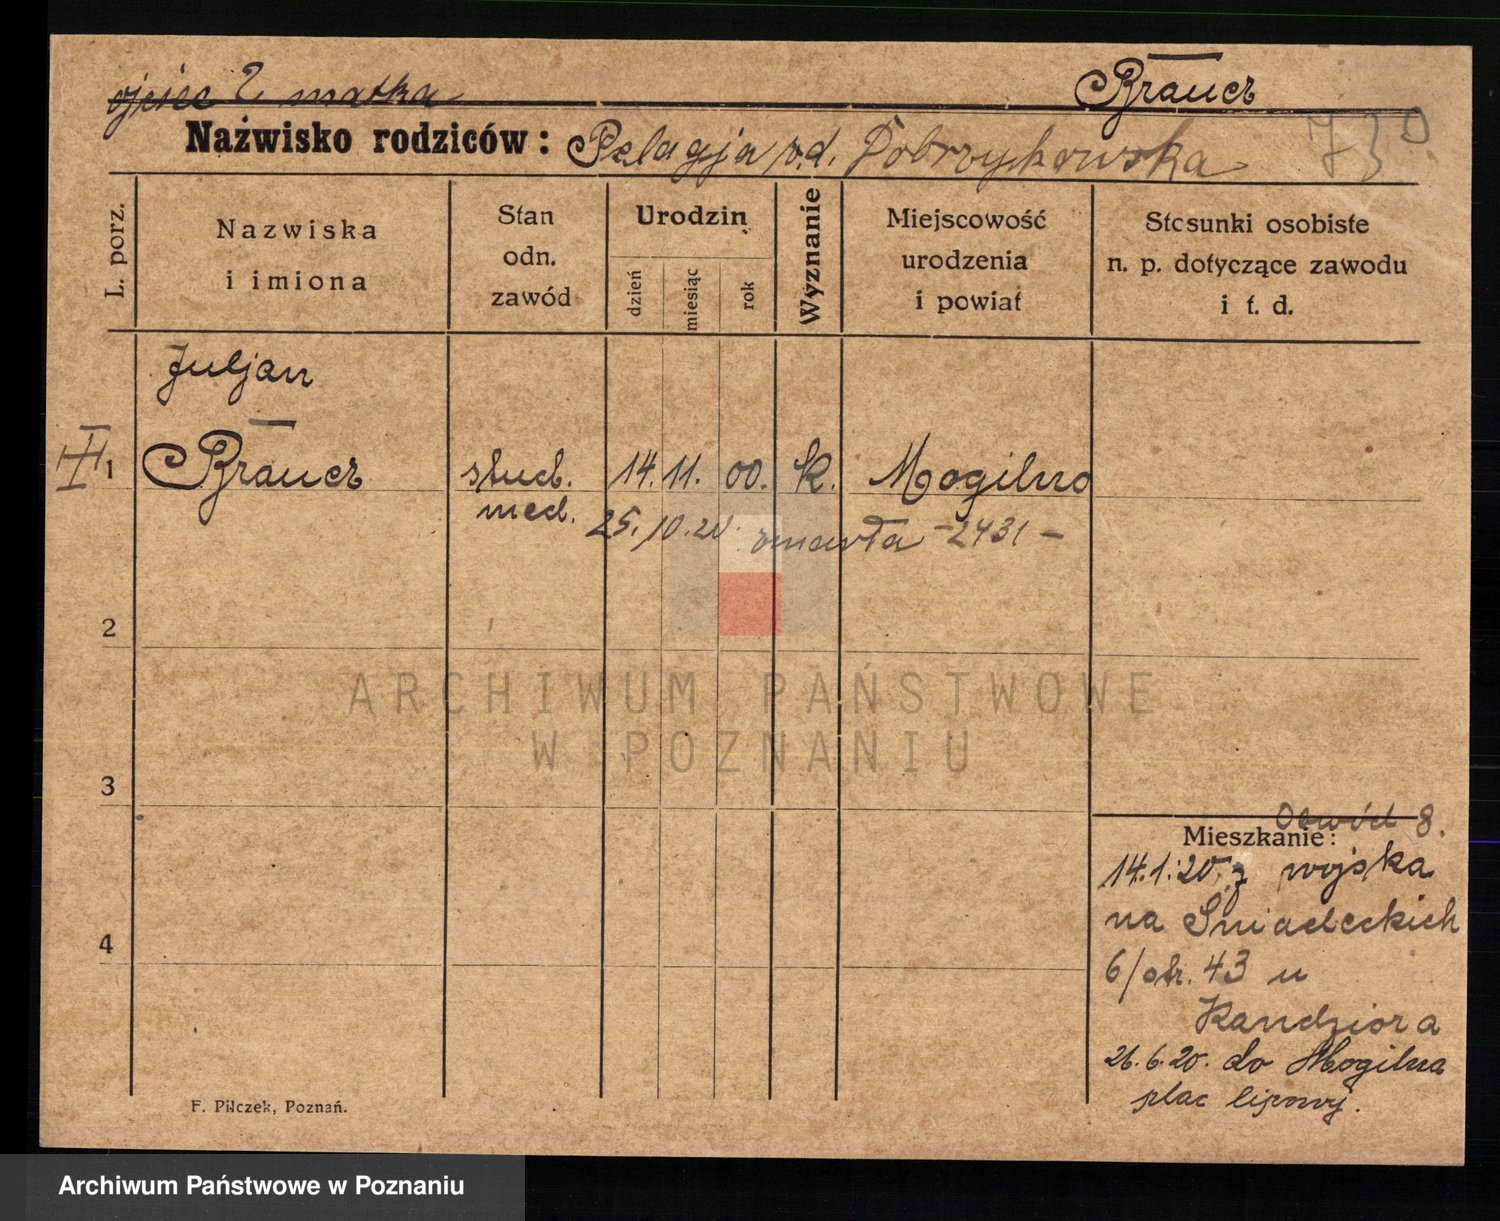 Brauer
ojciec ? matka
Nazwisko rodziców: Pelagja rd. Dobrzykowska
73
L. porz.
Nazwiska
i imiona
Stan
odn.
zawód
Urodzin
dzień
miesiąc
rok
Wyznanie
Miejscowość
urodzenia
i powiat
Stosunki osobiste
n. p. dotyczące zawodu
i t. d.
Juljan
1 Brauer stud. 14. 11. 00. k. Mogilno
med.
25. 10. 20. zmarła -2431-
2
ARCHIWUM PAŃSTWOWE
W POZNANIU
3
Obwód 8.
Mieszkanie:
14.1.20. z wojska
na Śniadeckich
6/ptr. 43 u
Kandziora
26.6.20. do Mogilna
plac lipowy.
4
F. Pilczek, Poznań.
Archiwum Państwowe w Poznaniu